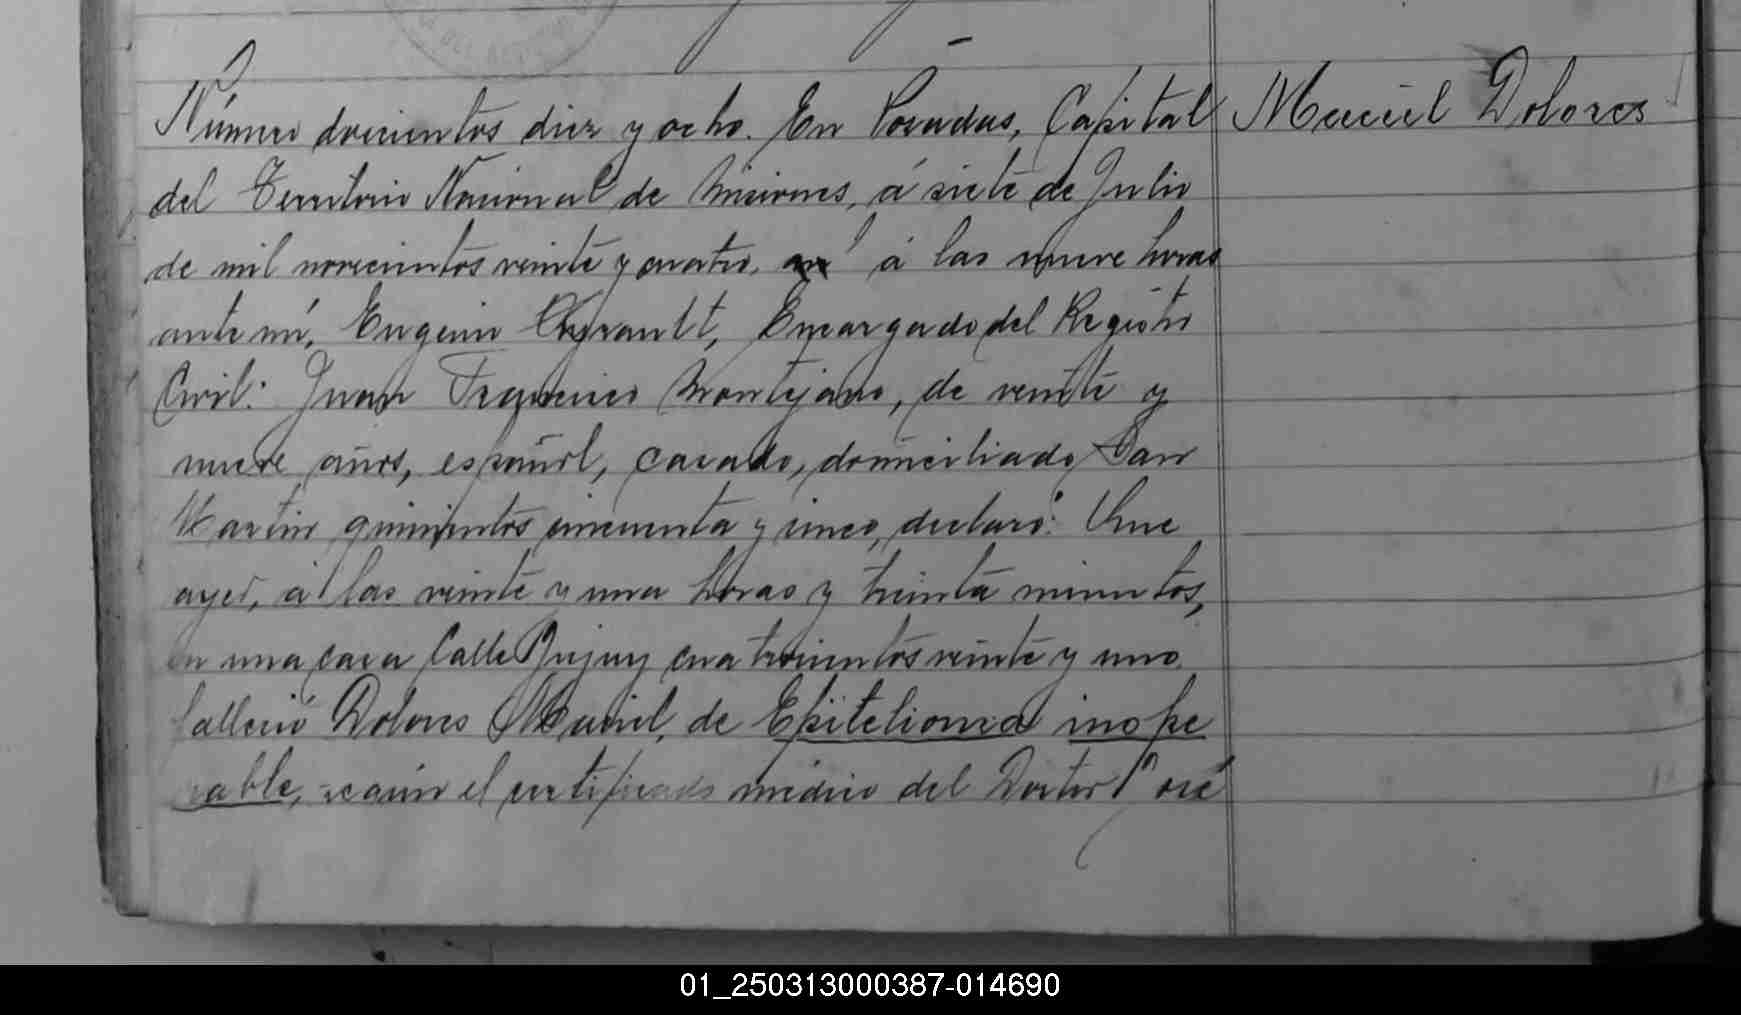 Número doscientos diez y ocho. En Posadas, Capital
Maciel Dolores
del Territorio Nacional de Misiones, á siete de Julio
de mil novecientos veinte y cuatro, á las nueve horas
ante mí, Eugenio Encargado del Registro
Civil: Juan Francisco Montejano, de veinte y
nueve años, español, casado, domiciliado San
Martin quinientos cincuenta y cinco, declaró: Que
ayer, á las veinte y una horas y treinta minutos,
en una casa Calle Jujuy cuatrocientos veinte y uno
falleció Dolores Maciel, de Epitelioma inope
rable, según el certificado médico del Doctor José
01_250313000387-014690